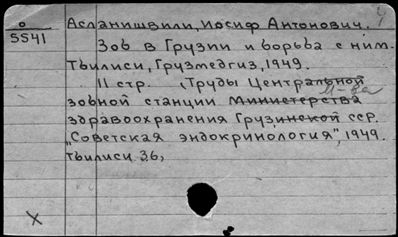 о
5541
Асланишвили, Иосиф Антонович.
Зоб в Грузии и борьба с ним.
Тбилиси, Грузмедгиз, 1949.
11 стр. (Труды Центральной
зобной станции Министерства М-ва
здравоохранения Грузинской сср.
"Советская эндокринология", 1949.
Тбилиси 36,
X